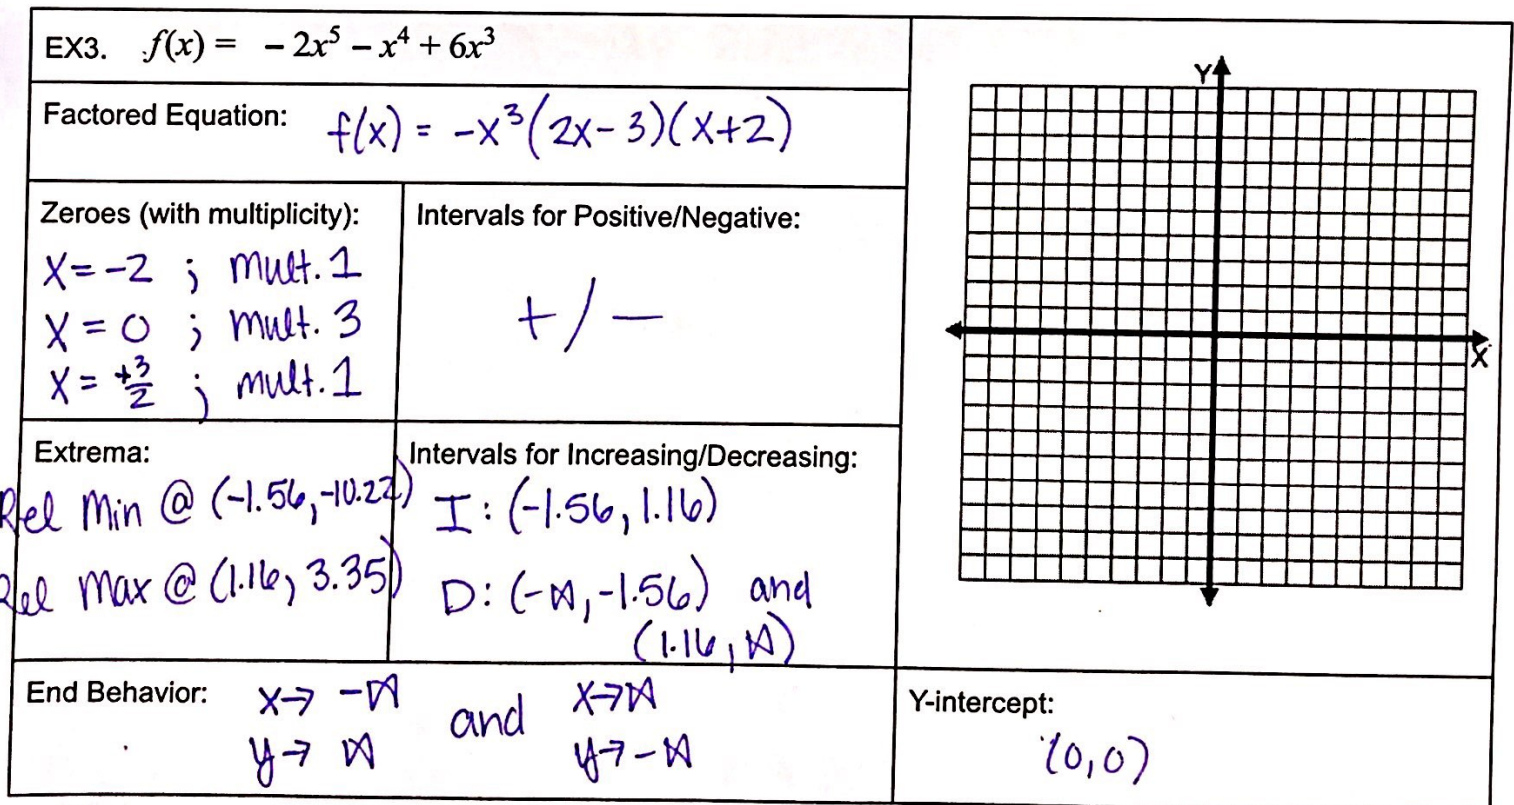 EX3. f(x) = − 2x⁵ − x⁴ + 6x³
Factored Equation: f(x) = -x³(2x-3)(x+2)
Zeroes (with multiplicity):
x = -2 ; mult. 1
x = 0 ; mult. 3
x = +3/2 ; mult. 1
Intervals for Positive/Negative:
+/−
Extrema:
Rel Min @ (-1.56, -10.22)
Rel Max @ (1.16, 3.35)
Intervals for Increasing/Decreasing:
I: (-1.56, 1.16)
D: (-∞, -1.56) and
(1.16, ∞)
Y
X
End Behavior: x→ -∞ and x→∞
y→ ∞ y→ -∞
Y-intercept:
(0,0)